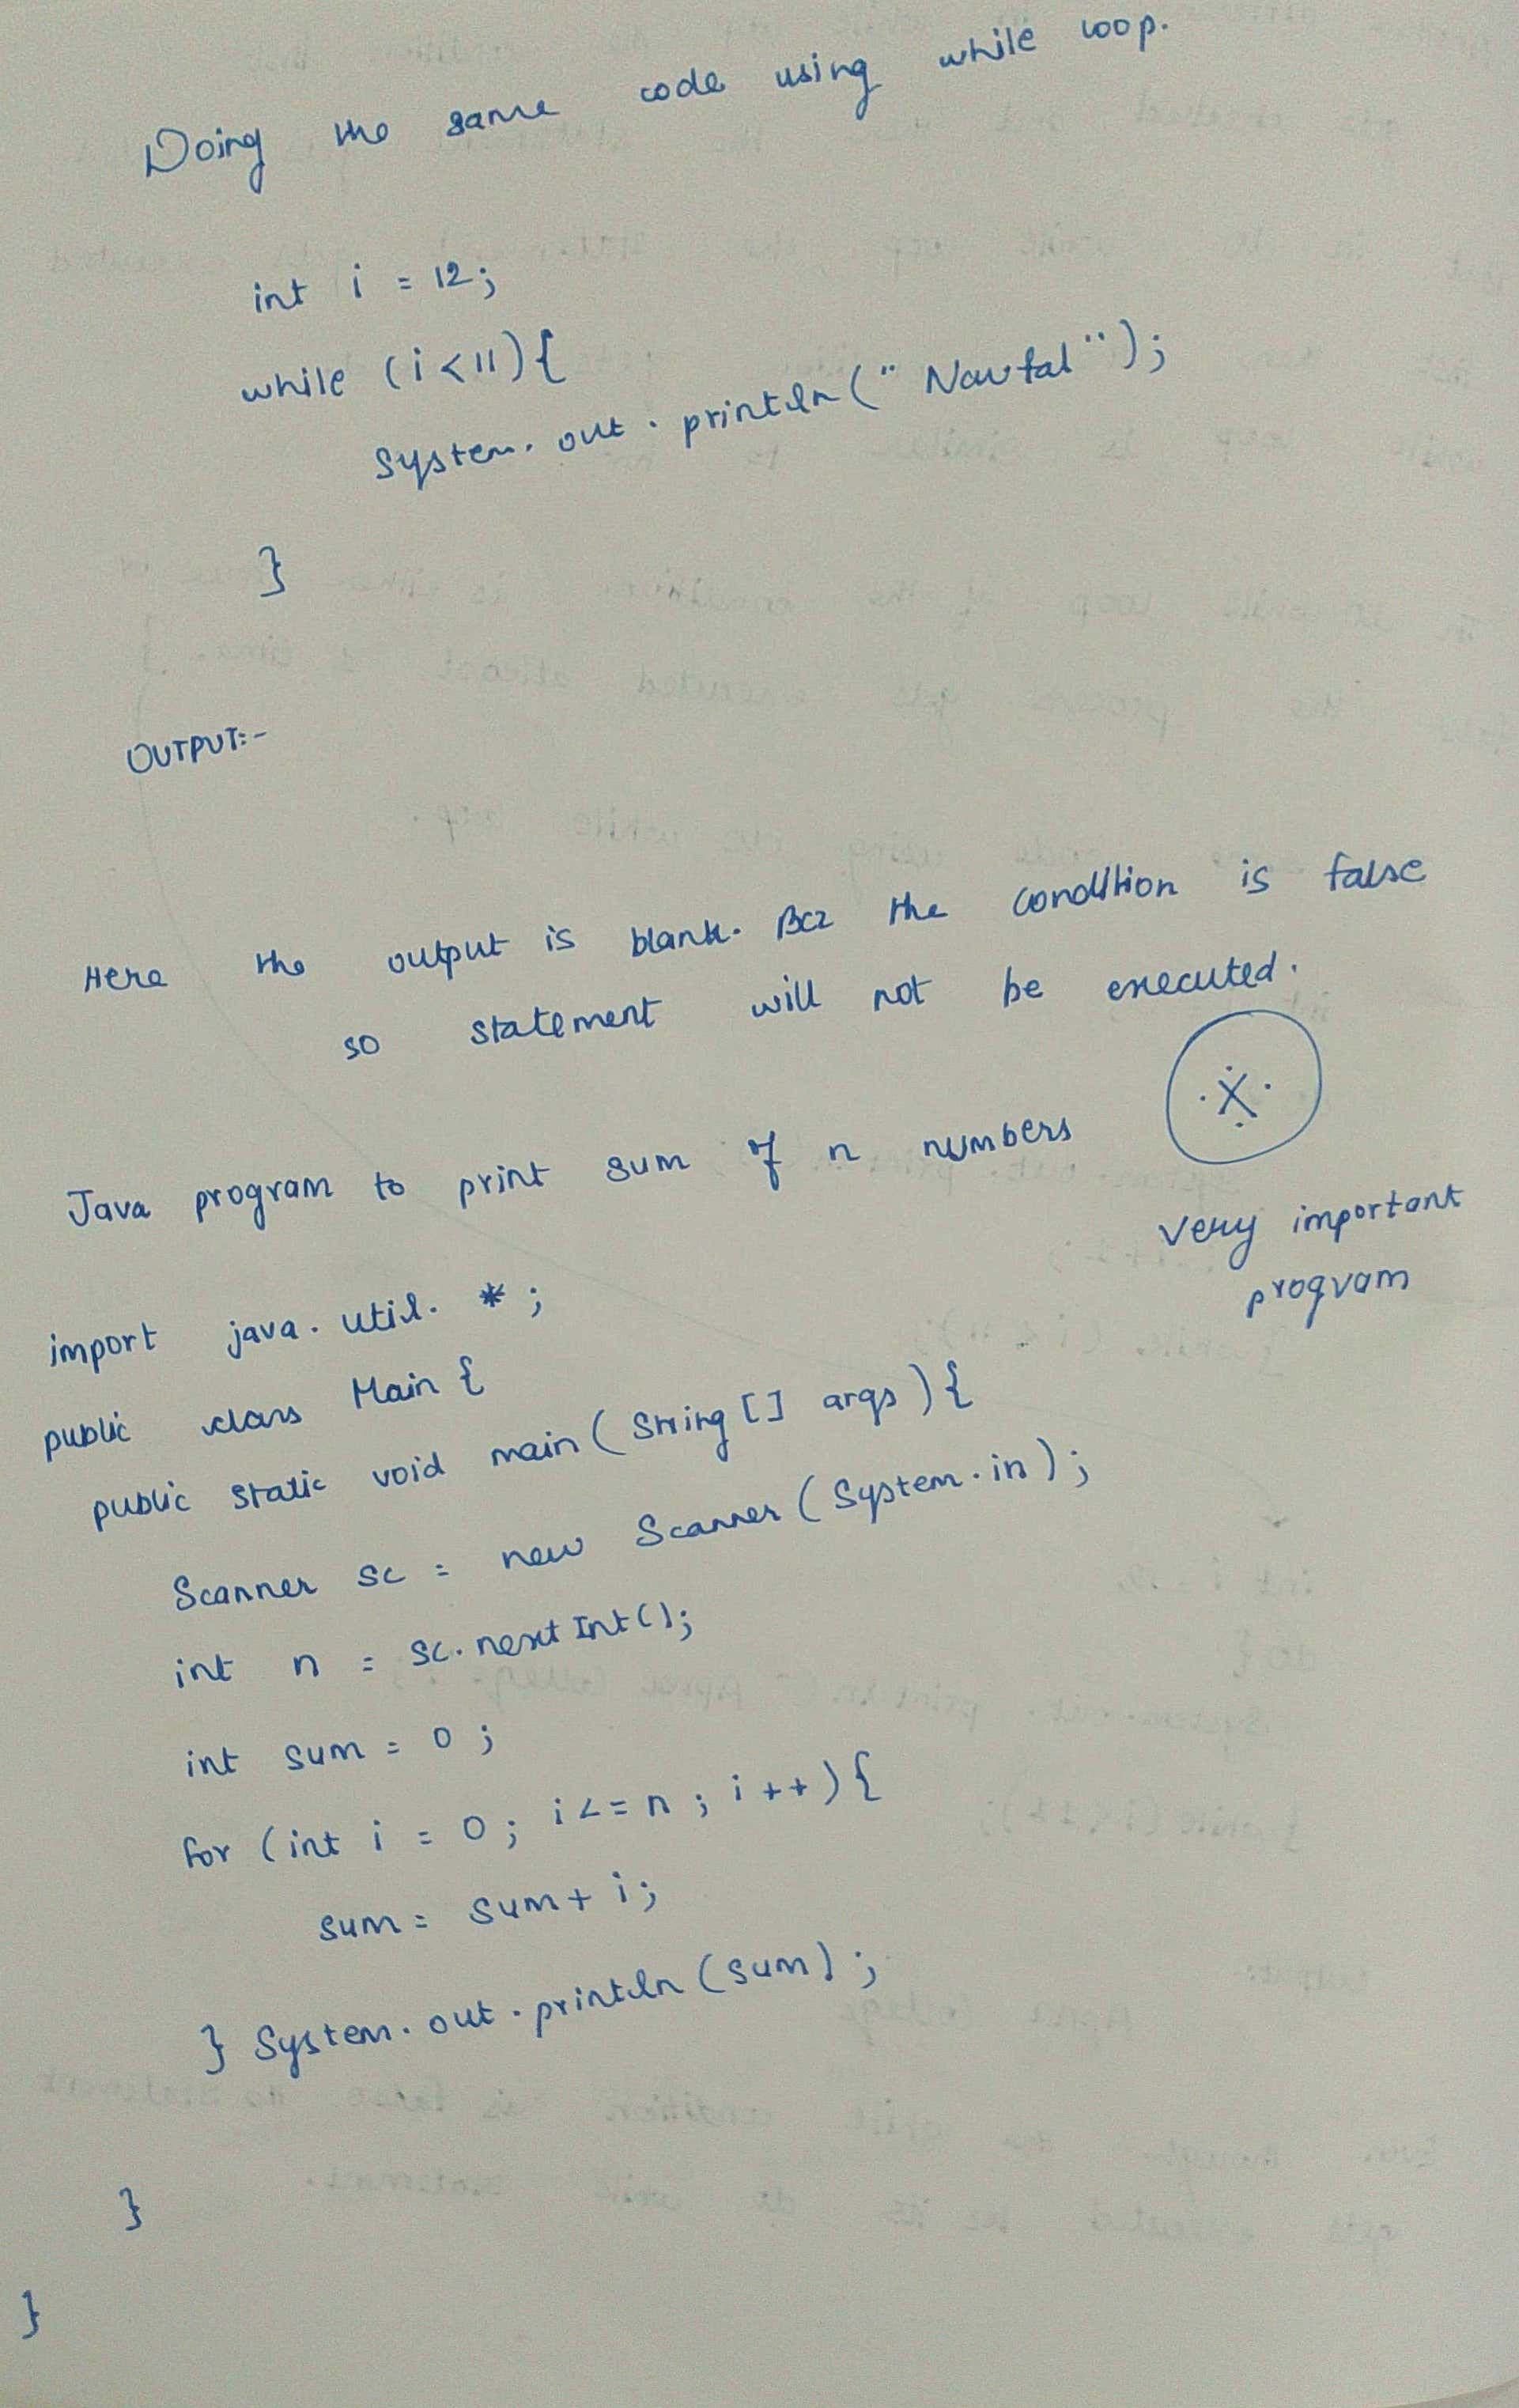 Doing the same code using while loop.
int i = 12;
while (i<11){
System.out.println("Nawfal");
}
OUTPUT:-
Here the output is blank. Bcz the condition is false
so statement will not be executed.
Java program to print sum of n numbers
very important
program
import java.util.*;
public class Main {
public static void main (String [] args ) {
Scanner sc = new Scanner (System.in);
int n = sc.nextInt();
int sum = 0;
for (int i = 0; i <= n; i++) {
sum = sum + i;
} System.out.println (sum);
}
}